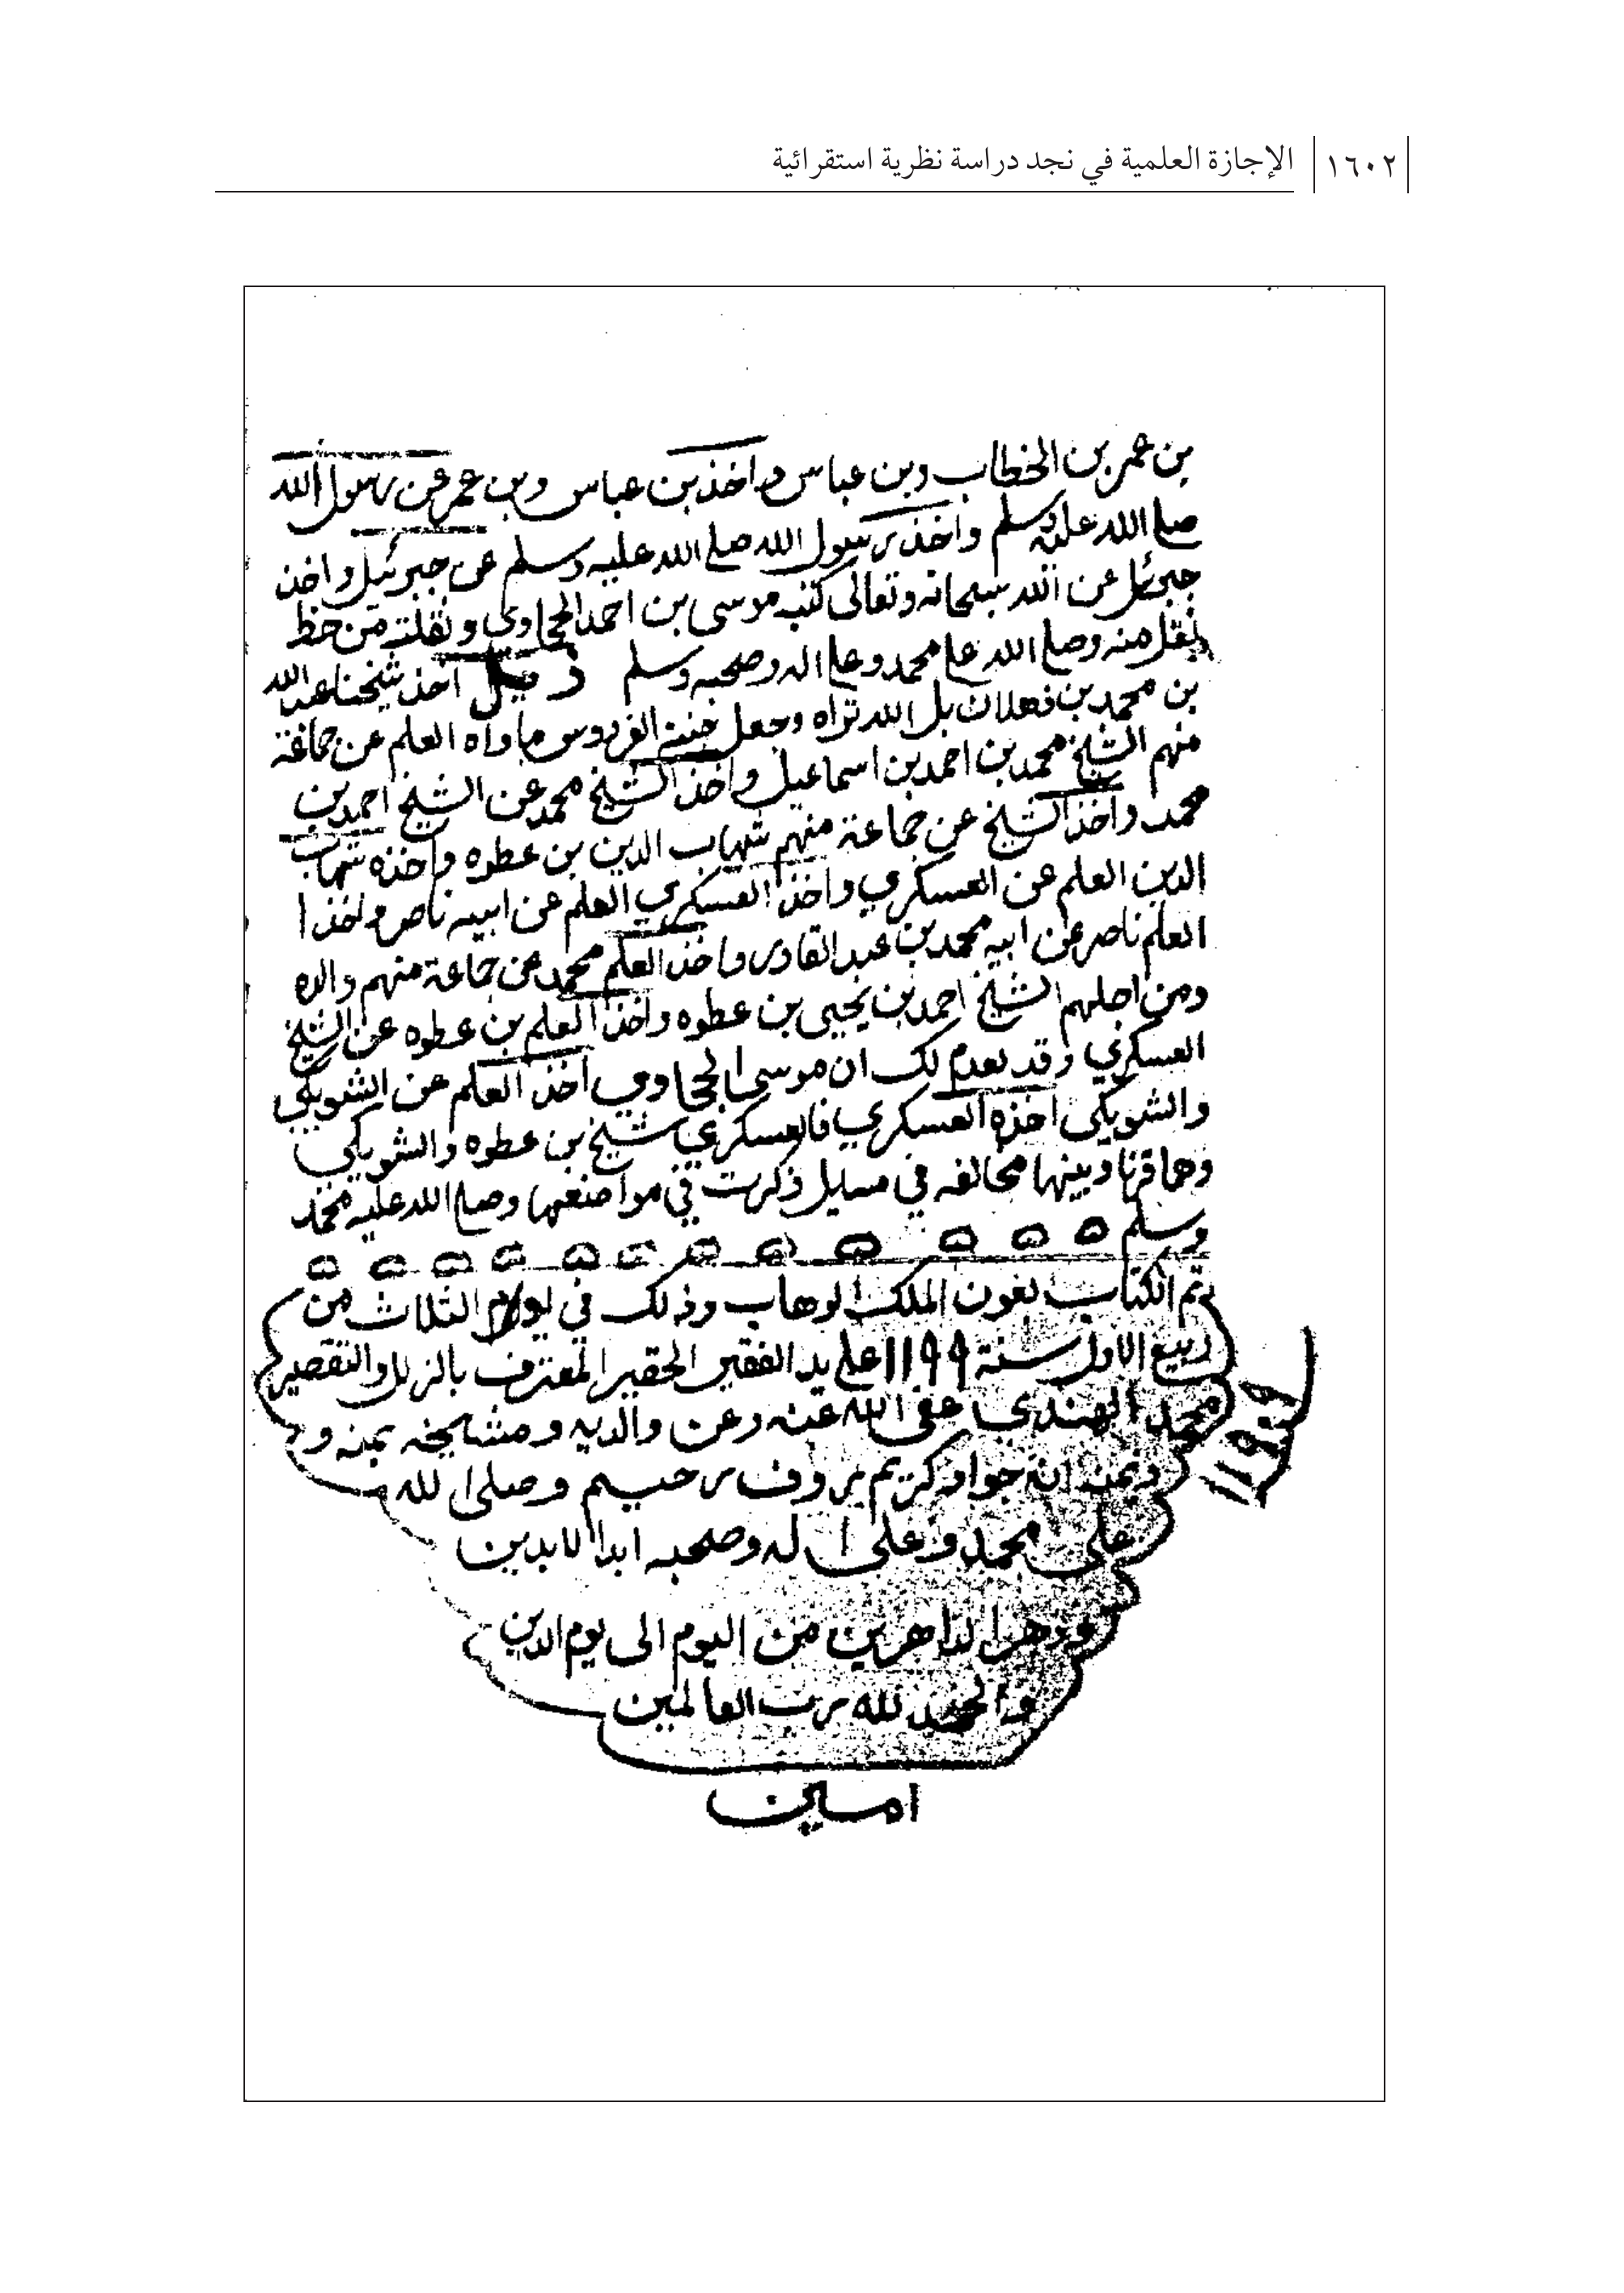 ١٦٠٢ الإجازة العلمية في نجد دراسة نظرية استقرائية
بن عمر بن الخطاب وبن عباس واخذ بن عباس وبن عمر عن رسول الله
صلى الله عليه وسلم واخذ رسول الله صلى الله عليه وسلم عن جبرئيل واخذ
جبرئيل عن الله سبحانه وتعالى كتبه موسى بن احمد الحجاوي ونقلته من خط
نقل منه وصلى الله على محمد وعلى اله وصحبه وسلم اخذ شيخنا عبدالله
بن محمد بن ذهلان بل الله ثراه وجعل جنة الفردوس ماواه العلم عن جماعة
منهم الشيخ محمد بن احمد بن اسماعيل واخذ الشيخ محمد عن الشيخ احمد بن
محمد واخذ الشيخ عن جماعة منهم شهاب الدين بن عطوه واخذه شهاب
الدين العلم عن العسكري واخذ العسكري العلم عن ابيه ناصر واخذ ا
العلم ناصر عن ابيه محمد بن عبد القادر واخذ العلم محمد عن جماعة منهم والده
ومن اجلهم الشيخ احمد بن يحيى بن عطوه واخذ العلم بن عطوه عن الشيخ
العسكري وقد تقدم لك ان موسى الحجاوي اخذ العلم عن الشويكي
والشويكي اخذه العسكري فالعسكري شيخ بن عطوه والشويكي
وهما قرنا وبينهما مخالفه في مسايل ذكرت في مواضعها وصلى الله عليه محمد
وسلم
تم الكتاب بعون الملك الوهاب وذلك في يوم الثلاث من
ربيع الاول سنة ١١٩٩ على يد الفقير الحقير المعترف بالزلل والتقصير
محمد الهندي عفى الله عنه وعن والديه ومشايخه بمنه و
انه جواد كريم بروف رحيم وصلى الله
على محمد وعلى اله وصحبه ابد الابدين
ودهر الداهرين من اليوم الى يوم الدين
والحمد لله رب العالمين
امين